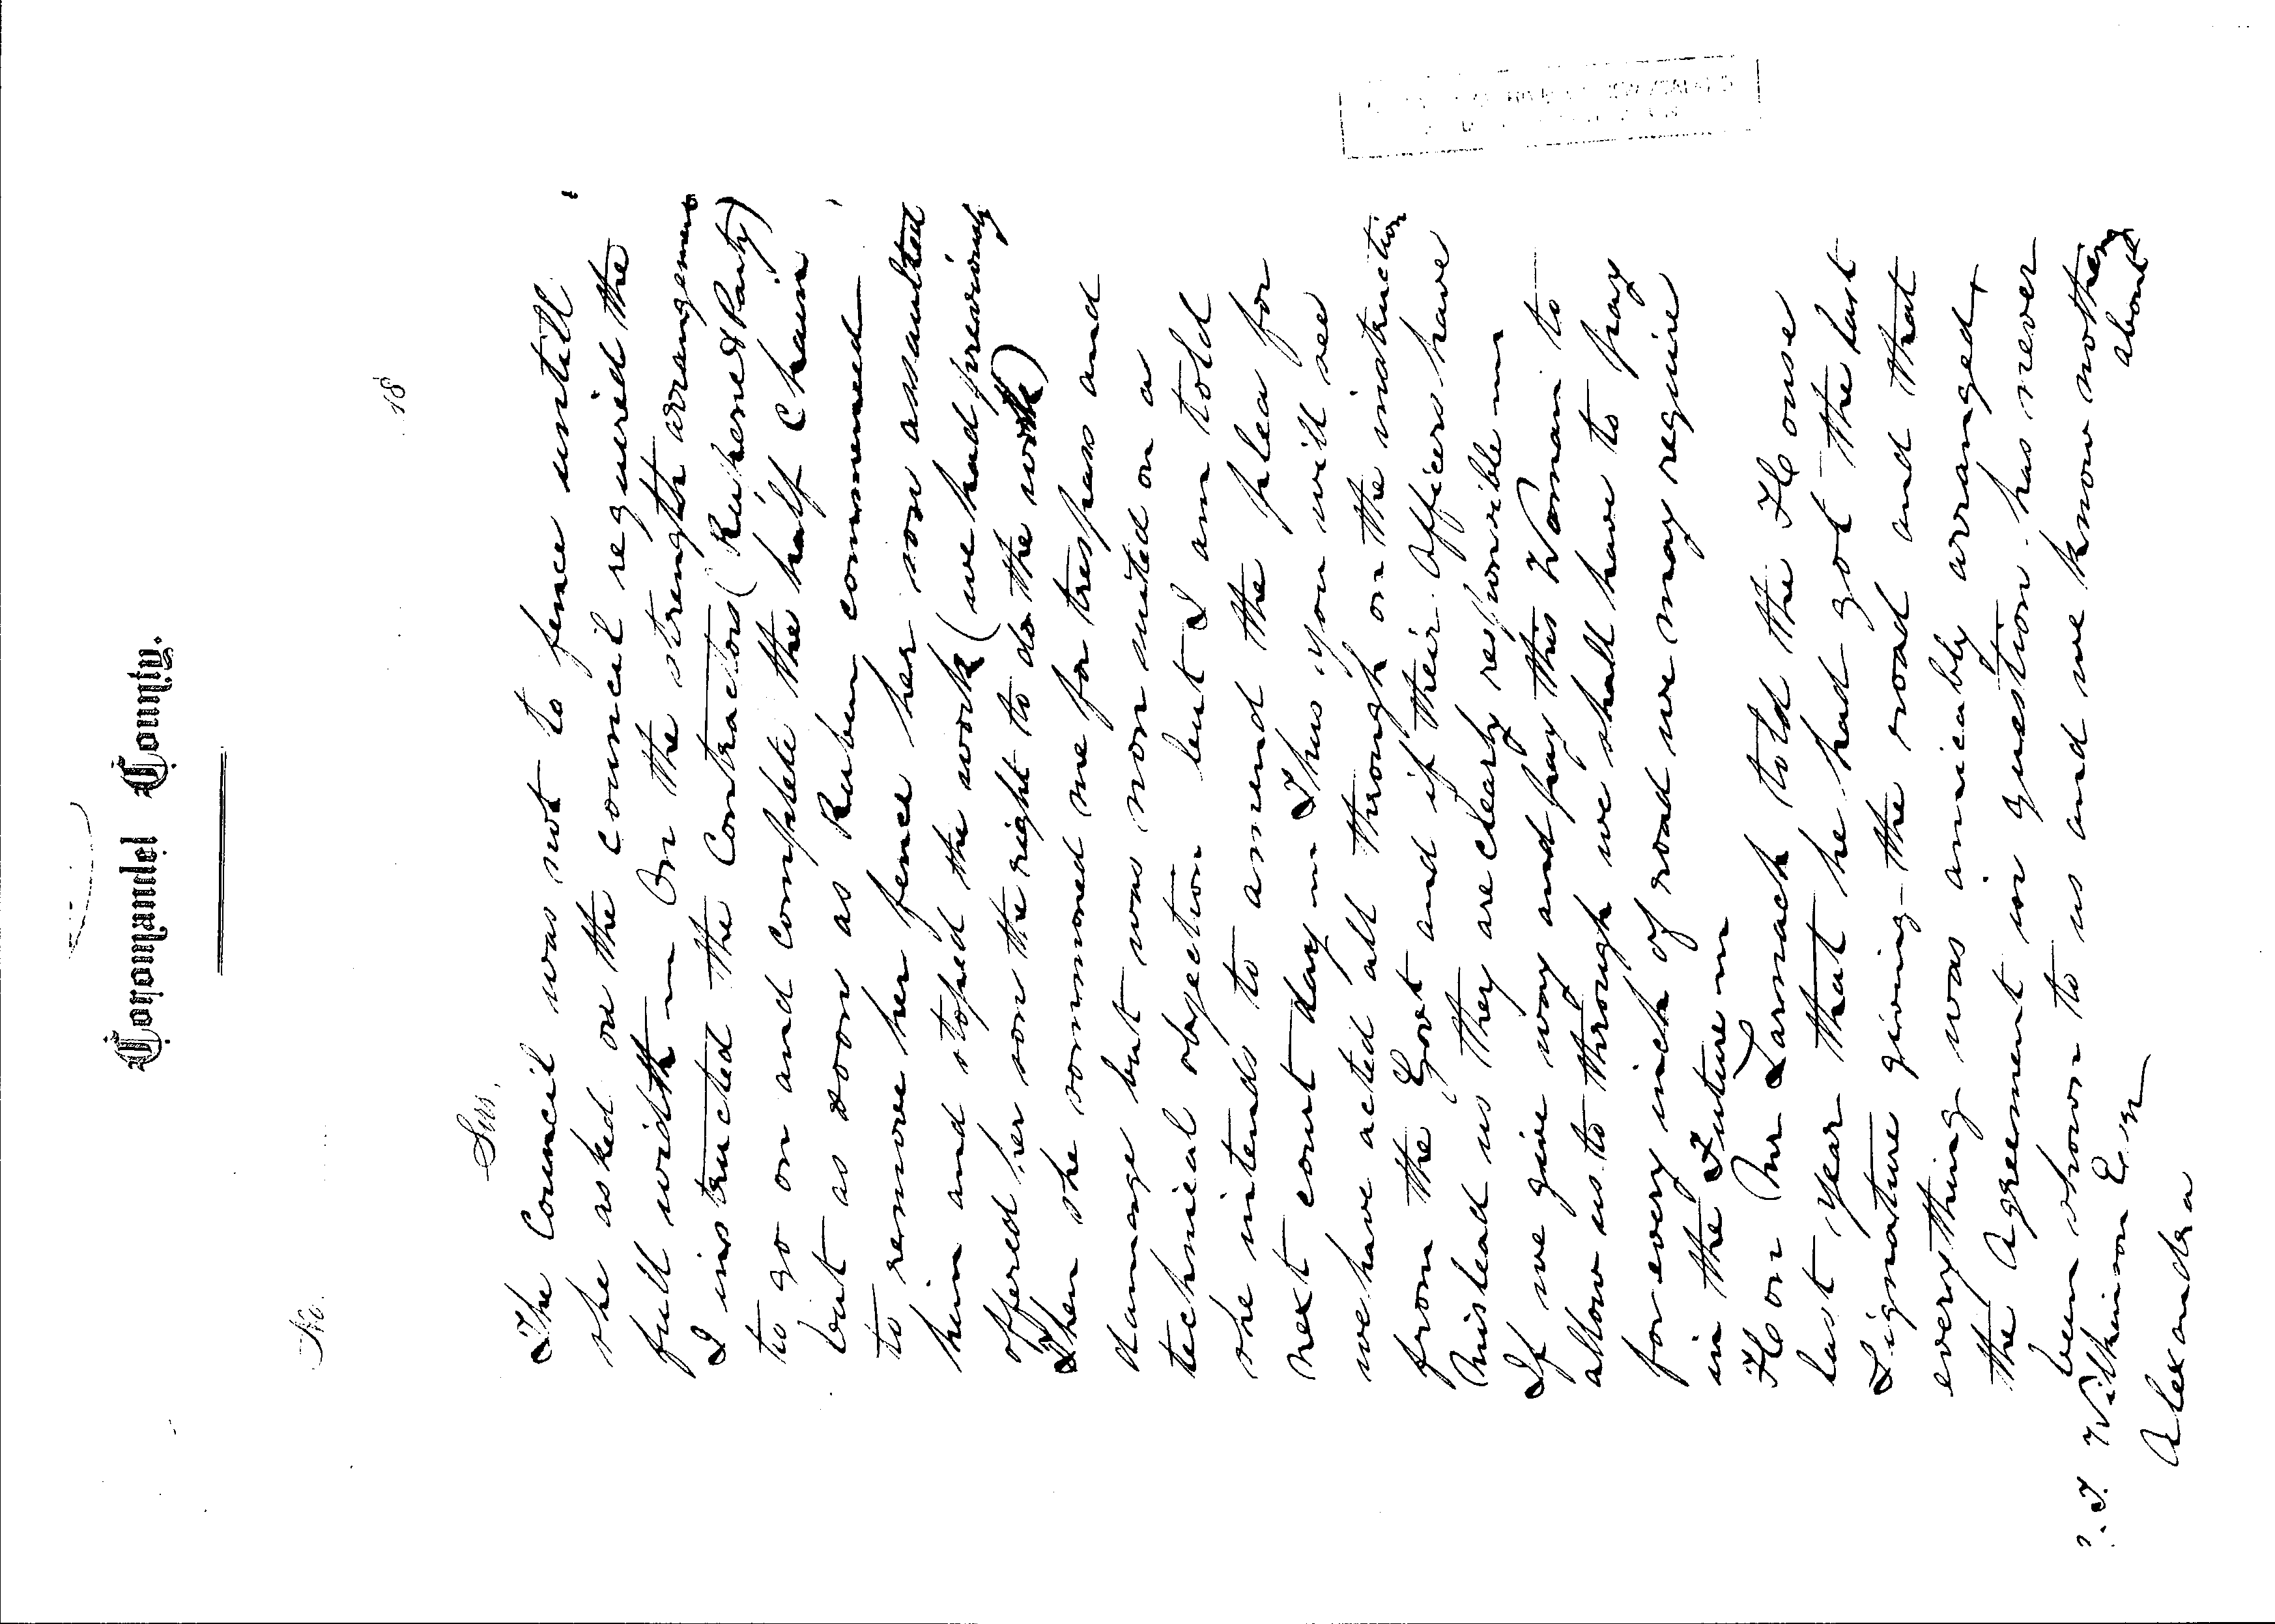 Coromandel County.
No.
18
Sir,
The Council was not to fence untill
she asked or the council required the
full width — On the strength arrangement
I instructed the Contractors (Reubene & Party)
to go on and complete the half Chain
but as soon as Reuben commenced
to remove her fence her son assaulted
him and stoped the work (we had previously
offered her son the right to do the work)
Then she sommoned me for trespass and
damage but was non suited on a
technical objection but I am told
she intends to amend the plea for
next court day — Thus you will see
we have acted all through on the instruction
from the Govt and if their Officers have
Mislead us they are clearly responsible —
If we give way and pay this Woman to
allow us to through we shall have to pay
for every inch of road we may require
in the Future —
Hon Mr Larnach told the House
last year that he had got the last
Signature giving the road and that
everything was amicably arranged,
the Agreement in question has never
been shown to us and we know nothing
about
T. Wilkinson Esqr
Alexandra